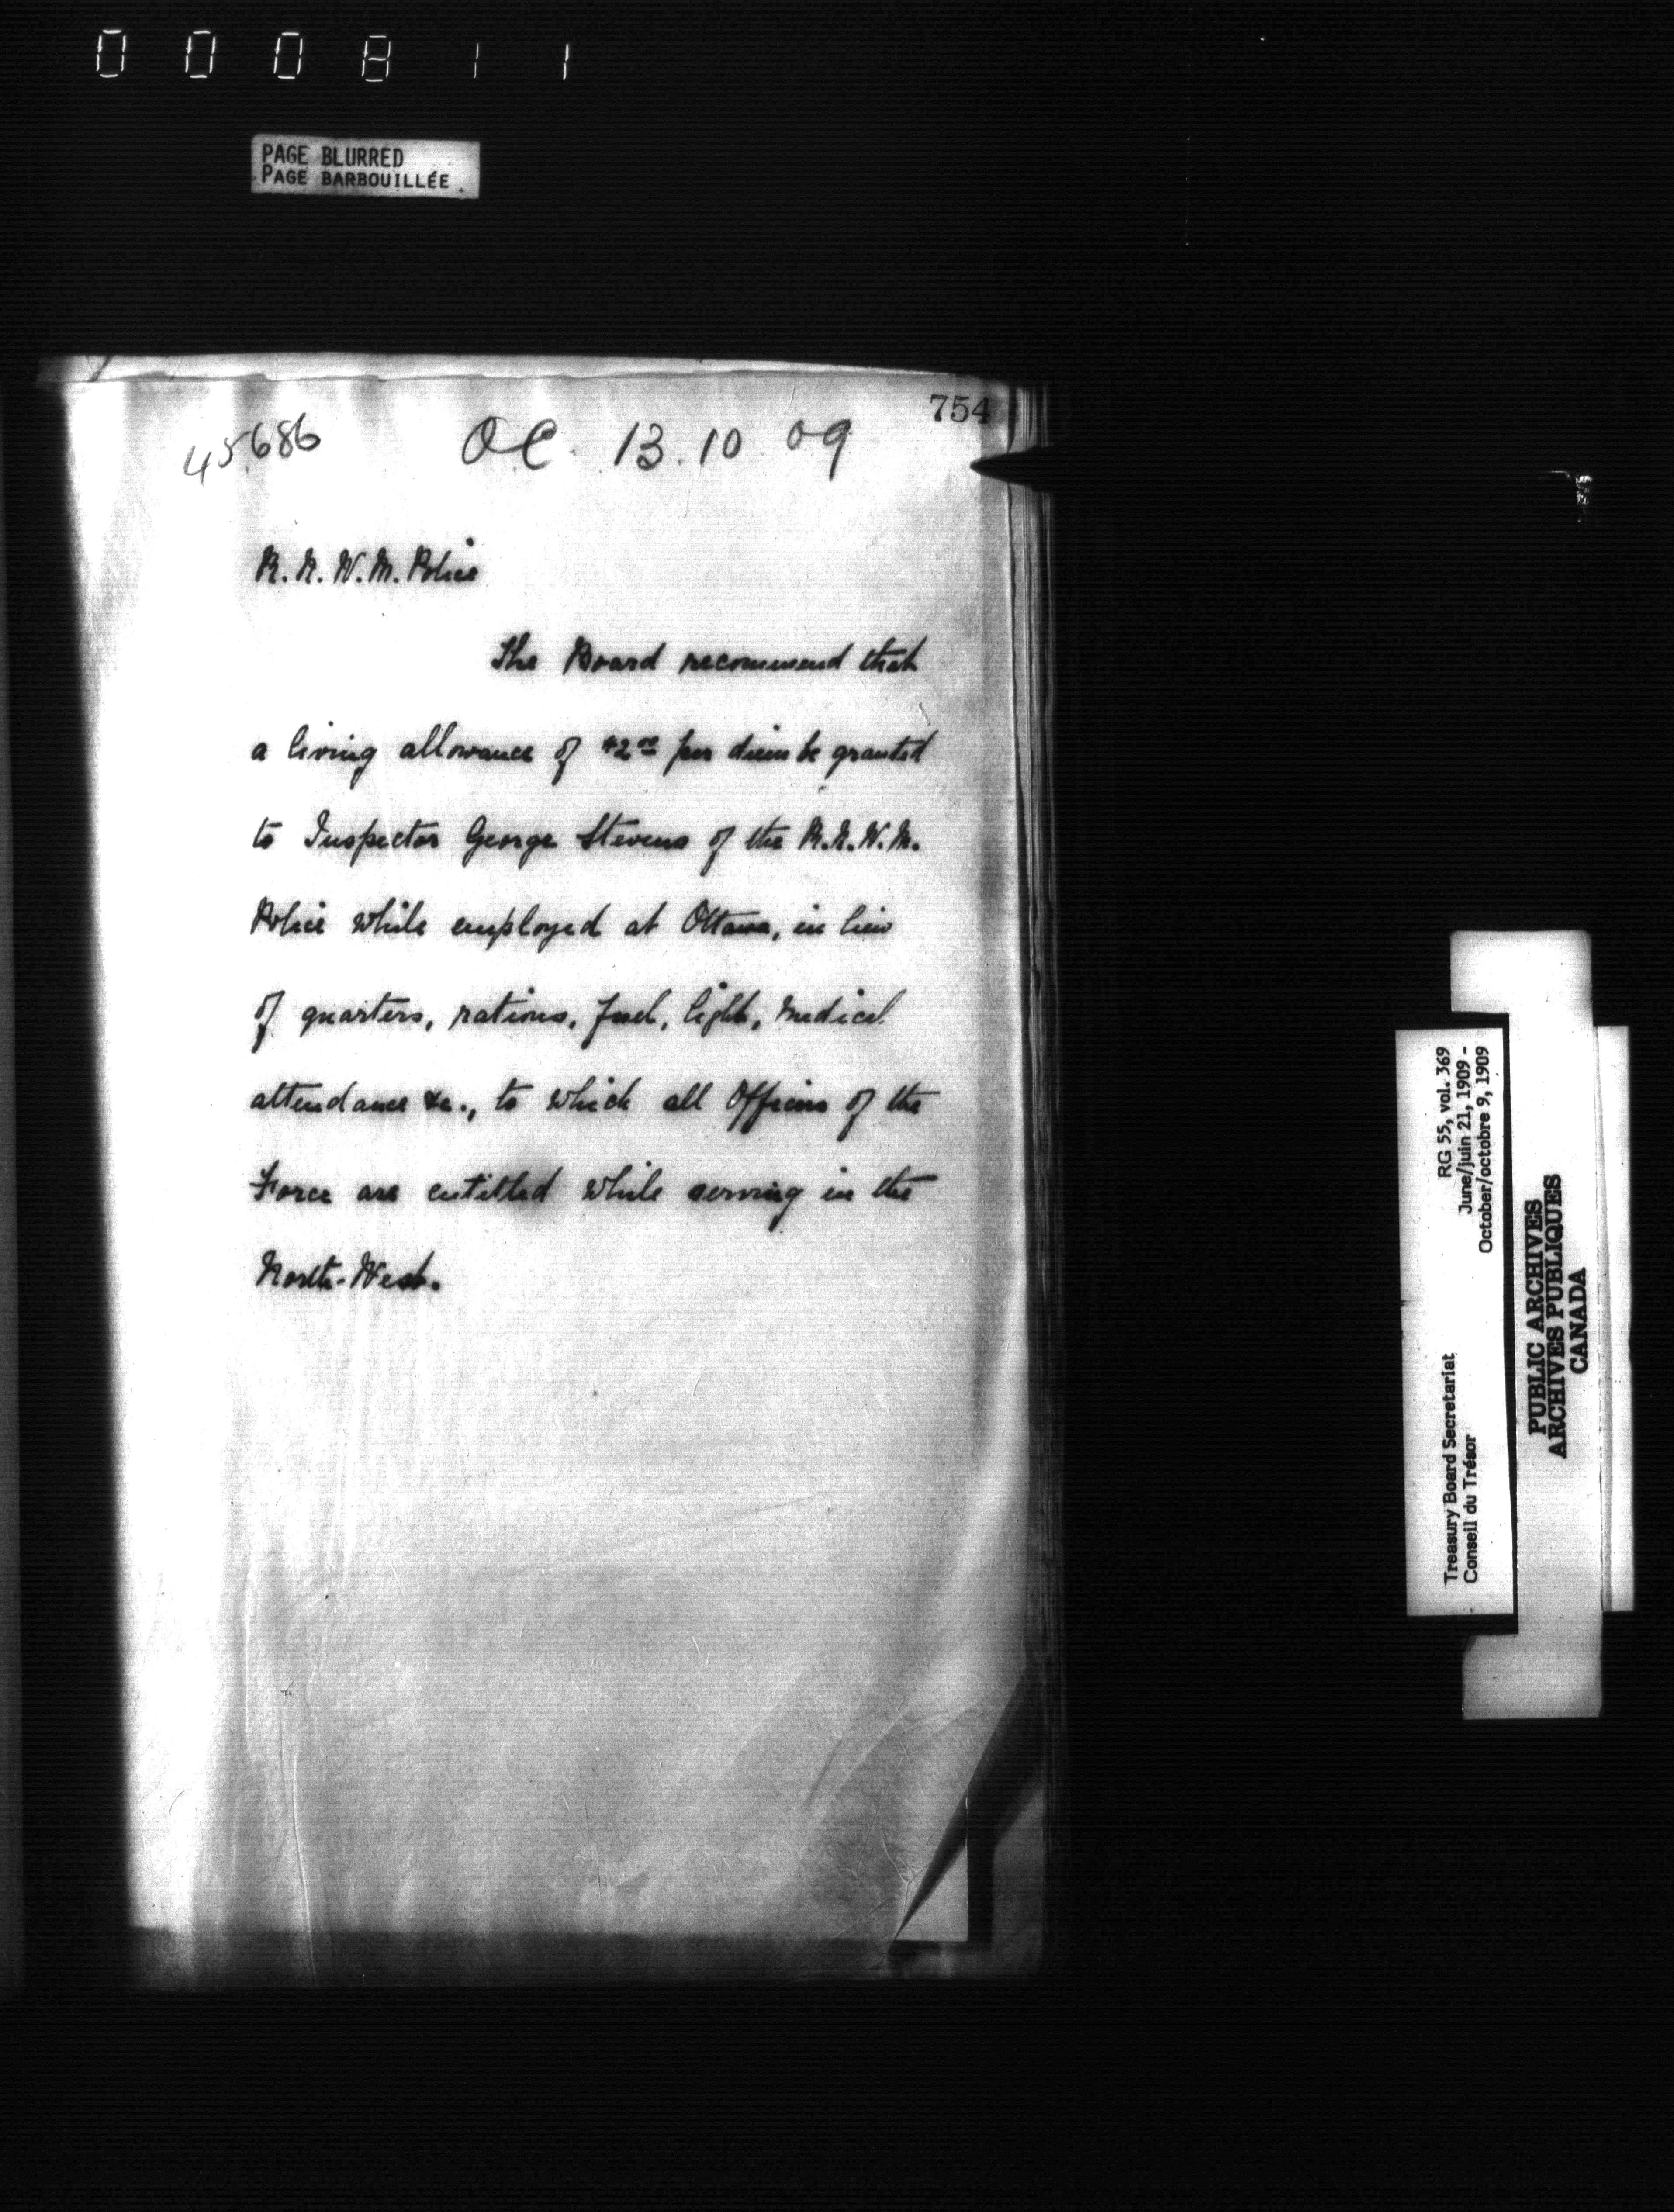 000811
PAGE BLURRED
PAGE BARBOUILLÉE
754
45686
OC. 13.10.09
R. N. W. M. Police
The Board recommend that
a living allowance of $2.00 per diem be granted
to Inspector George Stevens of the R.N.W.M.
Police while employed at Ottawa, in lieu
of quarters, rations, fuel, light, medical
attendance &c., to which all Officers of the
Force are entitled while serving in the
North-West.
RG 55, vol. 369
June/juin 21, 1909 -
October/octobre 9, 1909
Treasury Board Secretariat
Conseil du Trésor
PUBLIC ARCHIVES
ARCHIVES PUBLIQUES
CANADA